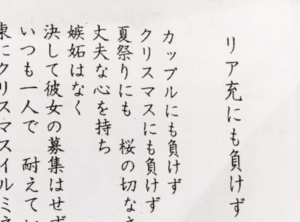 リア充にも負けず
カップルにも負けず
クリスマスにも負けず
夏祭りにも 桜の切なさ
丈夫な心を持ち
嫉妬はなく
決して彼女の募集はせず
いつも一人で 耐えてい
東にクリスマスイルミネ